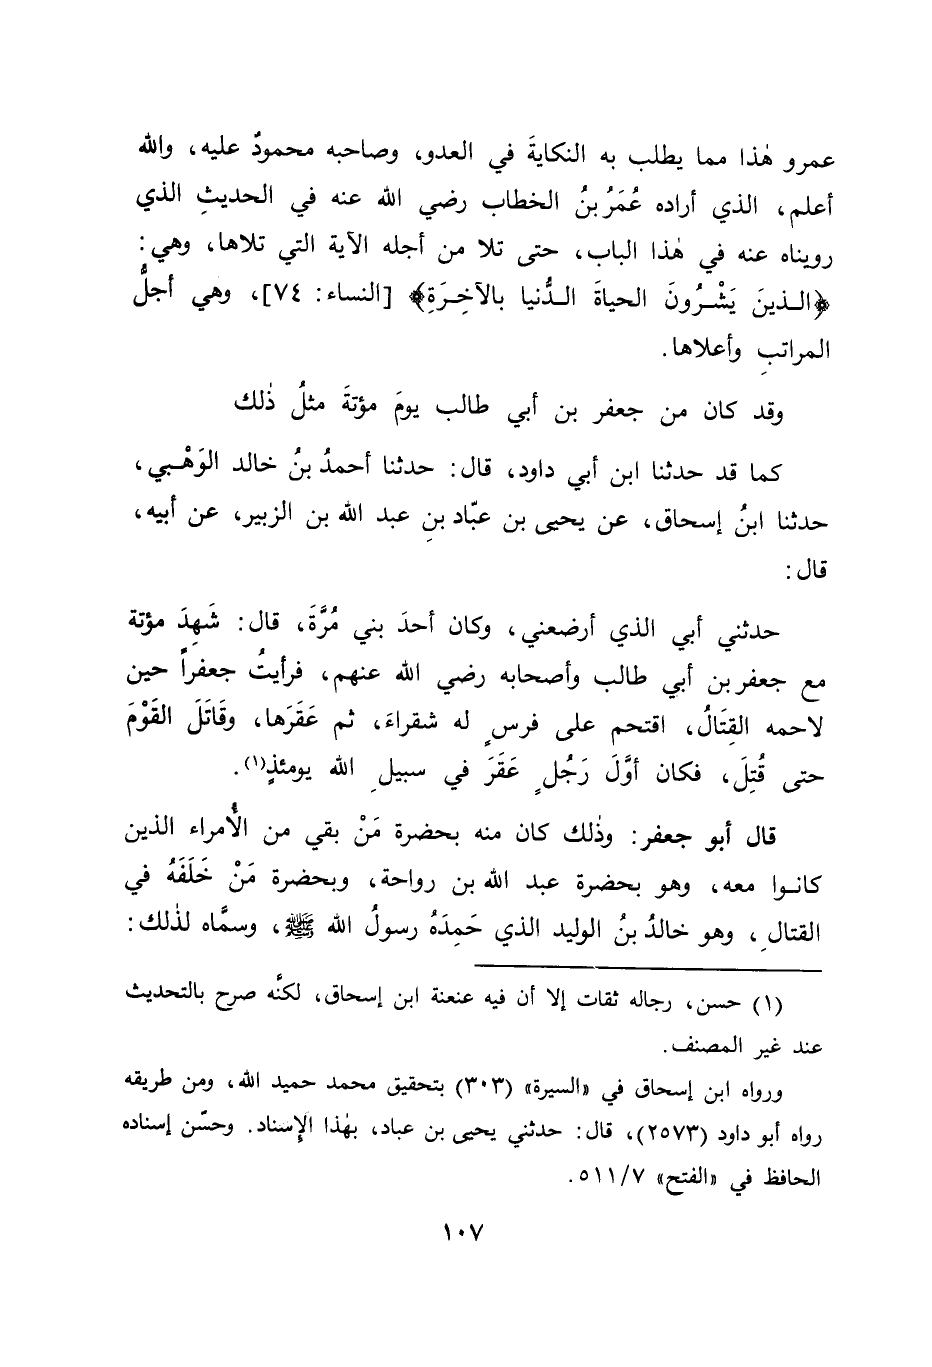 عمرو هٰذا مما يطلب به النكايةَ في العدو، وصاحبه محمودٌ عليه، والله
أعلم، الذي أراده عُمَرُ بنُ الخطاب رضي الله عنه في الحديثِ الذي
رويناه عنه في هٰذا الباب، حتى تلا من أجله الآية التي تلاها، وهي:
﴿الـذينَ يَشْـرُونَ الحياةَ الـدُّنيا بالآخِـرَةِ﴾ [النساء: ٧٤]، وهي أجلُّ
المراتبِ وأعلاها.
وقد كان من جعفر بن أبي طالب يومَ مؤتةَ مثلُ ذٰلك
كما قد حدثنا ابن أبي داود، قال: حدثنا أحمدُ بنُ خالد الوَهْـبي،
حدثنا ابنُ إسحاق، عن يحيى بن عبّاد بنِ عبد الله بن الزبير، عن أبيه،
قال:
حدثني أبي الذي أرضعني، وكان أحدَ بني مُرَّةَ، قال: شَهِدَ مؤتة
مع جعفر بن أبي طالب وأصحابه رضي الله عنهم، فرأيتُ جعفراً حين
لاحمه القِتَالُ، اقتحم على فرسٍ له شقراءَ، ثم عَقَرَها، وقَاتَلَ القَوْمَ
حتى قُتِلَ، فكان أوَّلَ رَجُلٍ عَقَرَ في سبيلِ الله يومئذٍ(١).
قال أبو جعفر: وذٰلك كان منه بحضرة مَنْ بقي من الأُمراء الذين
كانـوا معه، وهو بحضرة عبد الله بن رواحة، وبحضرة مَنْ خَلَفَهُ في
القتالِ، وهو خالدُ بنُ الوليد الذي حَمِدَهُ رسولُ الله ﷺ، وسمَّاه لذٰلك:
(١) حسن، رجاله ثقات إلا أن فيه عنعنة ابن إسحاق، لكنَّه صرح بالتحديث
عند غير المصنف.
ورواه ابن إسحاق في «السيرة» (٣٠٣) بتحقيق محمد حميد الله، ومن طريقه
رواه أبو داود (٢٥٧٣)، قال: حدثني يحيى بن عباد، بهٰذا الإِسناد. وحسّن إسناده
الحافظ في «الفتح» ٥١١/٧.
١٠٧